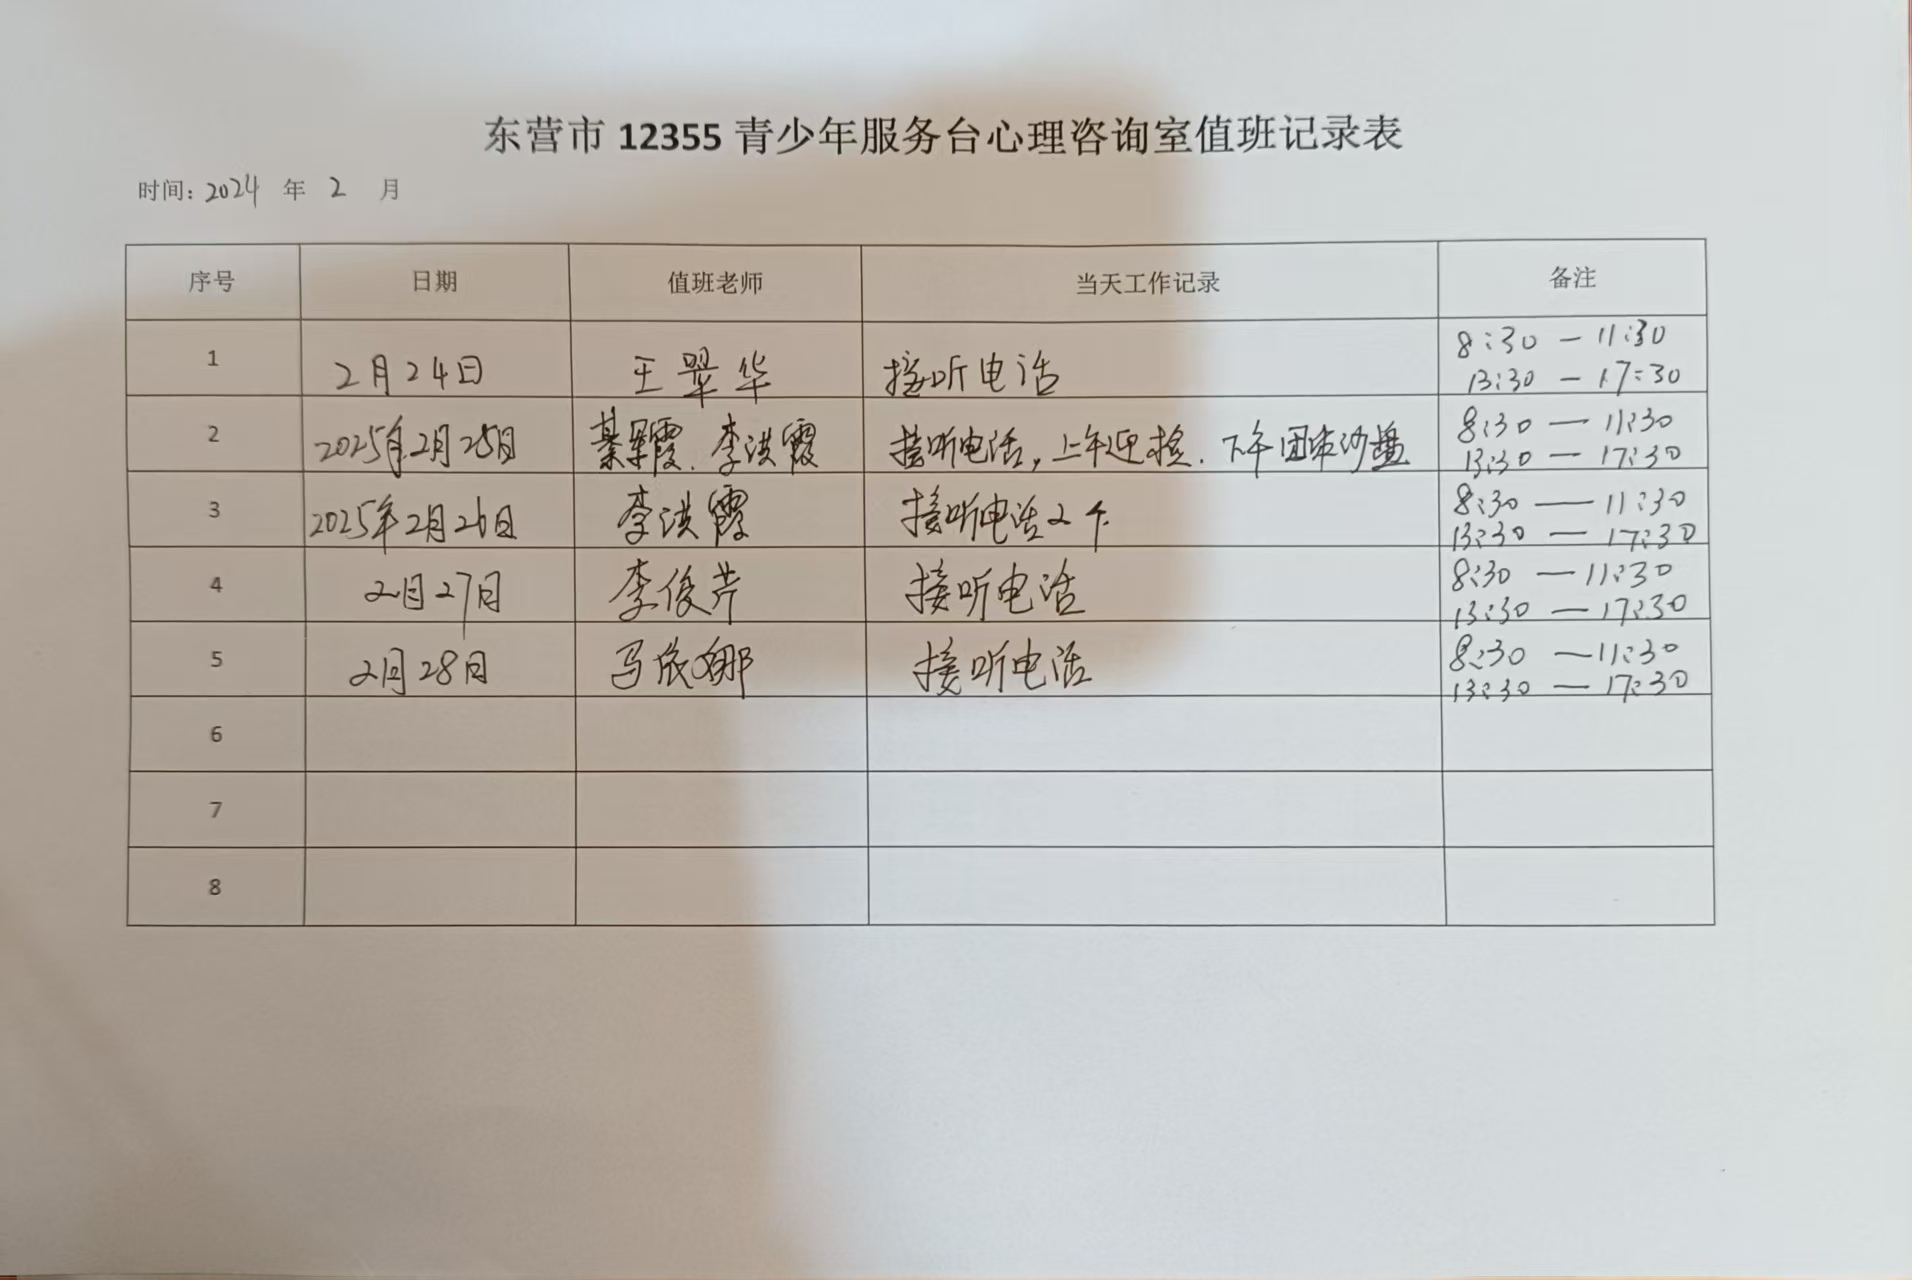 东营市 12355 青少年服务台心理咨询室值班记录表
时间: 2024 年 2 月
序号 日期 值班老师 当天工作记录 备注
1 2月24日 王翠华 接听电话 8:30 — 11:30
13:30 — 17:30
2 2025年2月25日 綦翠霞、李洪霞 接听电话, 上午迎检. 下午团体沙盘 8:30 — 11:30
13:30 — 17:30
3 2025年2月26日 李洪霞 接听电话2个 8:30 — 11:30
13:30 — 17:30
4 2月27日 李俊芹 接听电话 8:30 — 11:30
13:30 — 17:30
5 2月28日 马依娜 接听电话 8:30 — 11:30
13:30 — 17:30
6
7
8